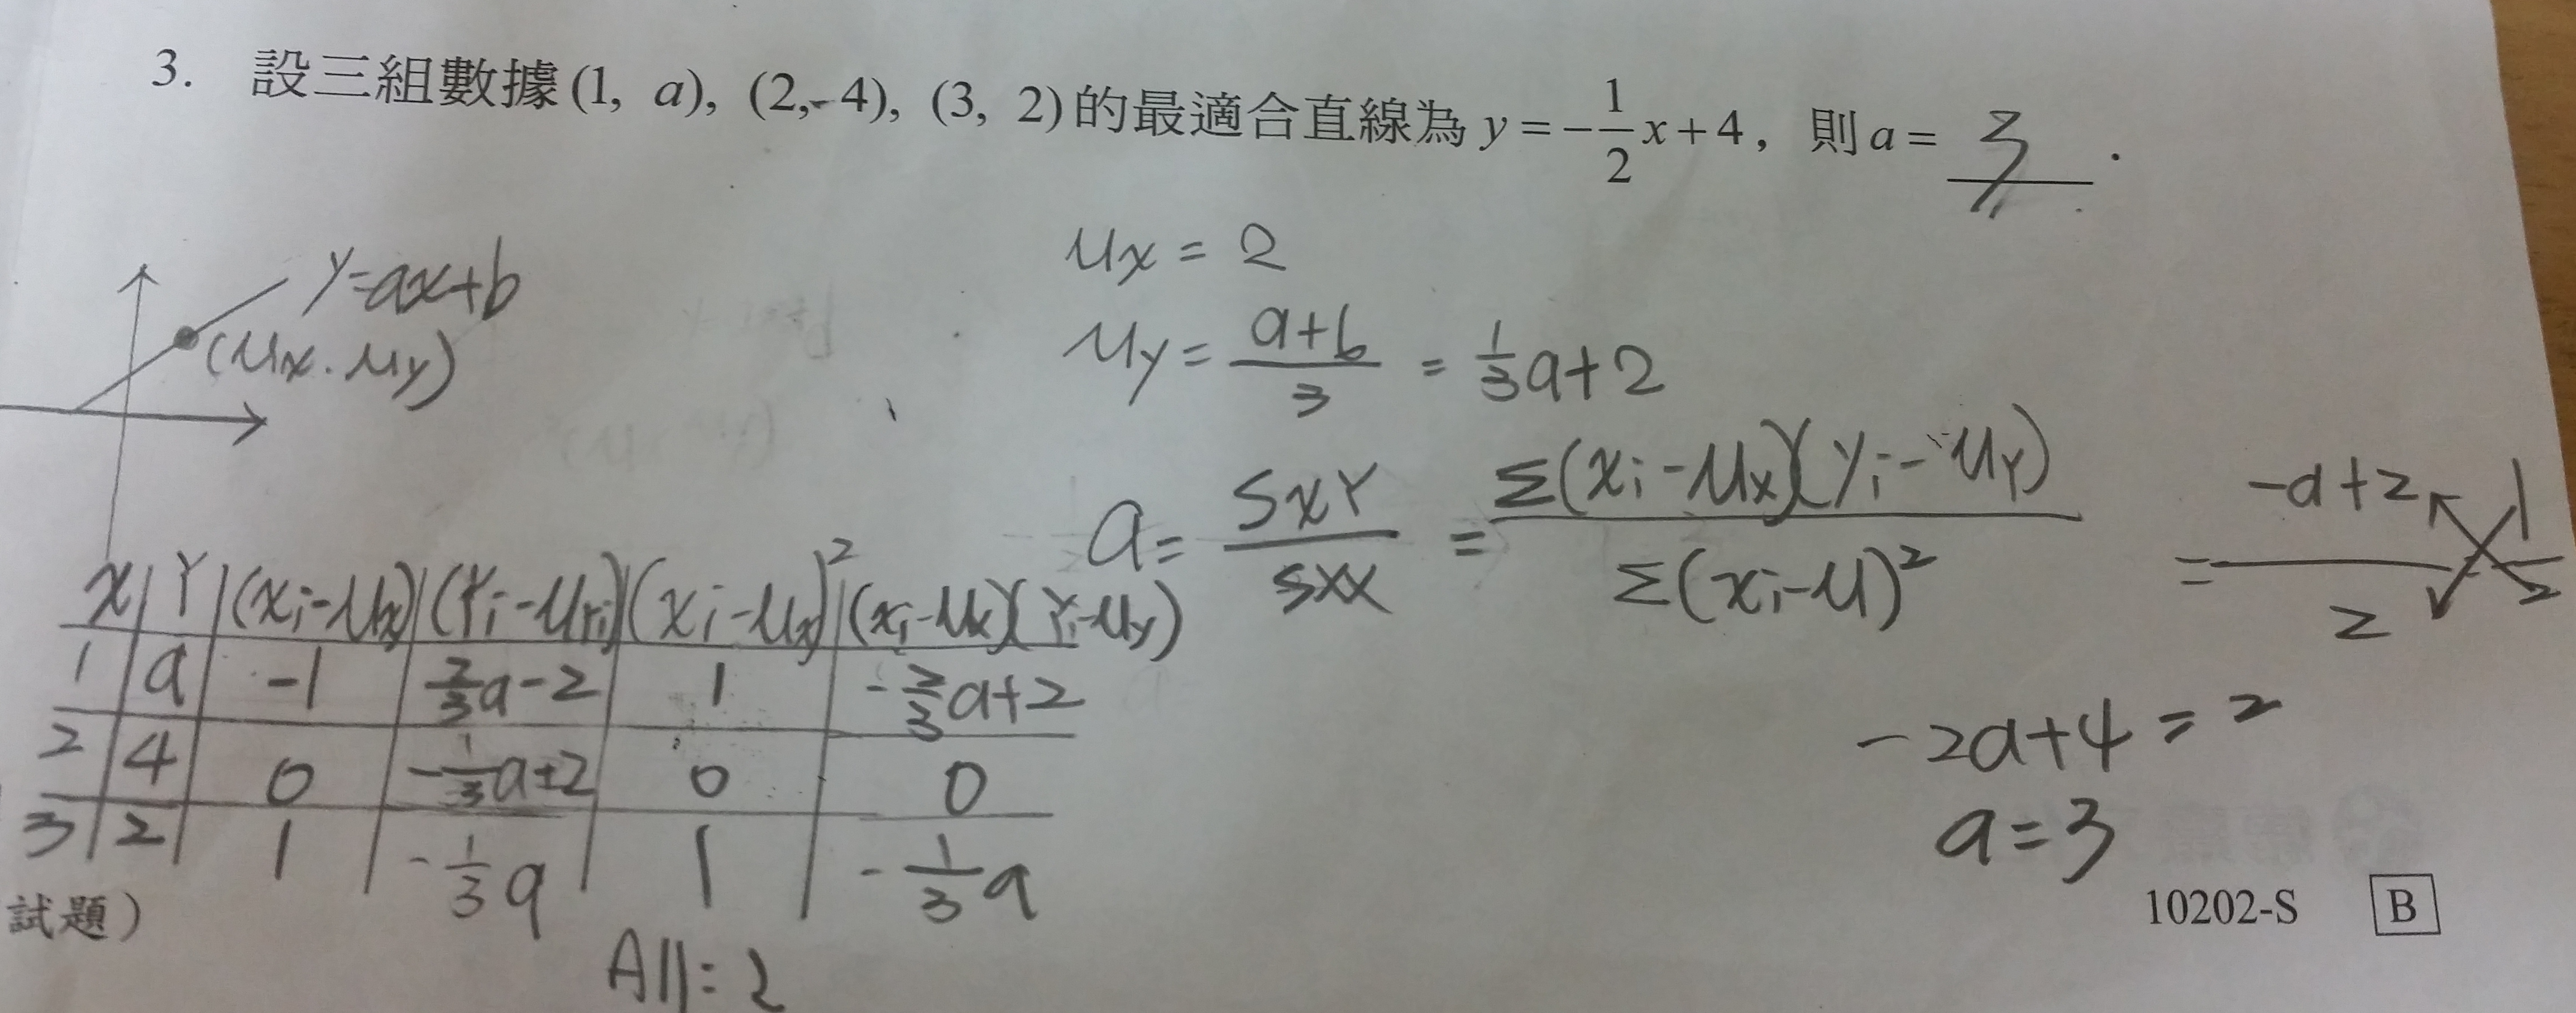 3. 設三組數據(1, a), (2, 4), (3, 2)的最適合直線為 y = -1/2 x + 4, 則 a = 3.
y=ax+b
(Mx. My)
Mx = 2
My = a+6/3 = 1/3 a+2
a = SXY/SXX = Σ(xi-Mx)(yi-My)/Σ(xi-M)² = -a+2/2 = -1/2
-2a+4 = -2
a=3
X | Y | (xi-Mx) | (Yi-MYi) | (xi-Mx)² | (xi-Mx)(Yi-My)
1 | a | -1 | 2/3 a-2 | 1 | -2/3 a+2
2 | 4 | 0 | -1/3 a+2 | 0 | 0
3 | 2 | 1 | -1/3 a | 1 | -1/3 a
All: 2
試題)
10202-S B